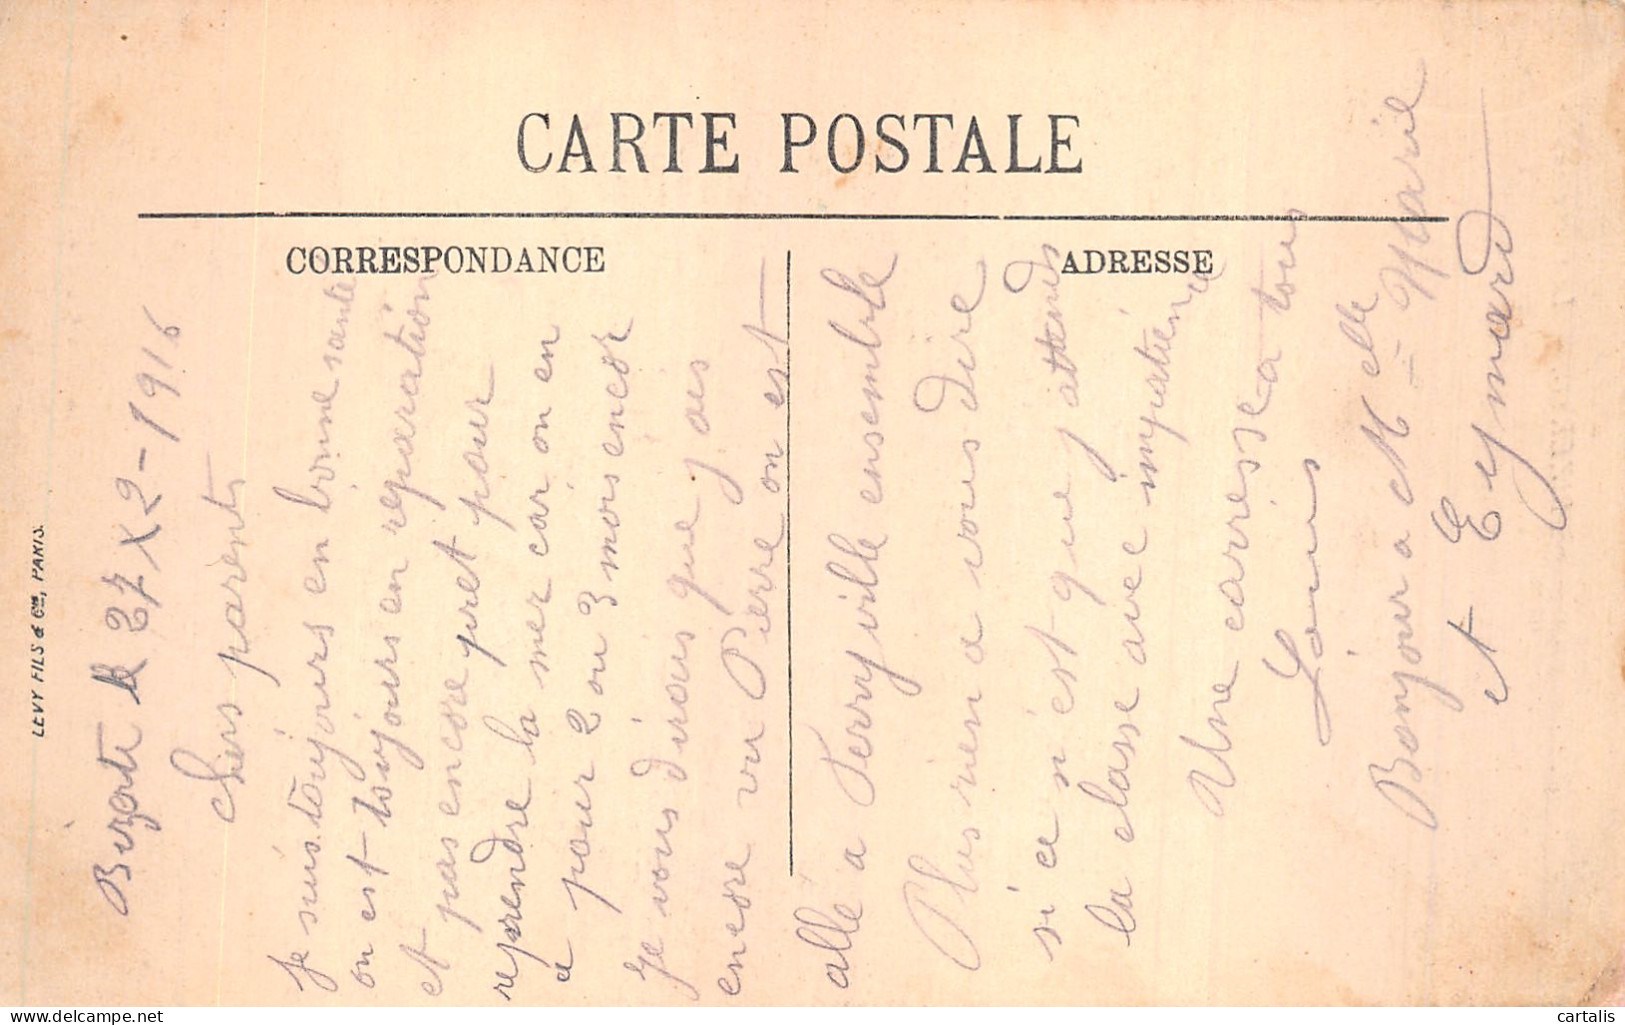 CARTE POSTALE
CORRESPONDANCE
ADRESSE
LEVY FILS & Cie, PARIS.
Bizerte le 27 X 2 - 1916
Chers parents
Je suis toujours en bonne sante
on est toujours en reparation
et pas encore pret pour
reprendre la mer car on en
a pour 2 ou 3 mois encor
Je vous dirais que j ais
encore vu Pierre on est
allé a Ferryville ensemble
Plus rien a vous dire
si ce n'est que j attends
la classe avec impatience
Une caresse a tous
Louis
Bonjour a M elle Marie
et Eymard
delcampe.net
cartalis